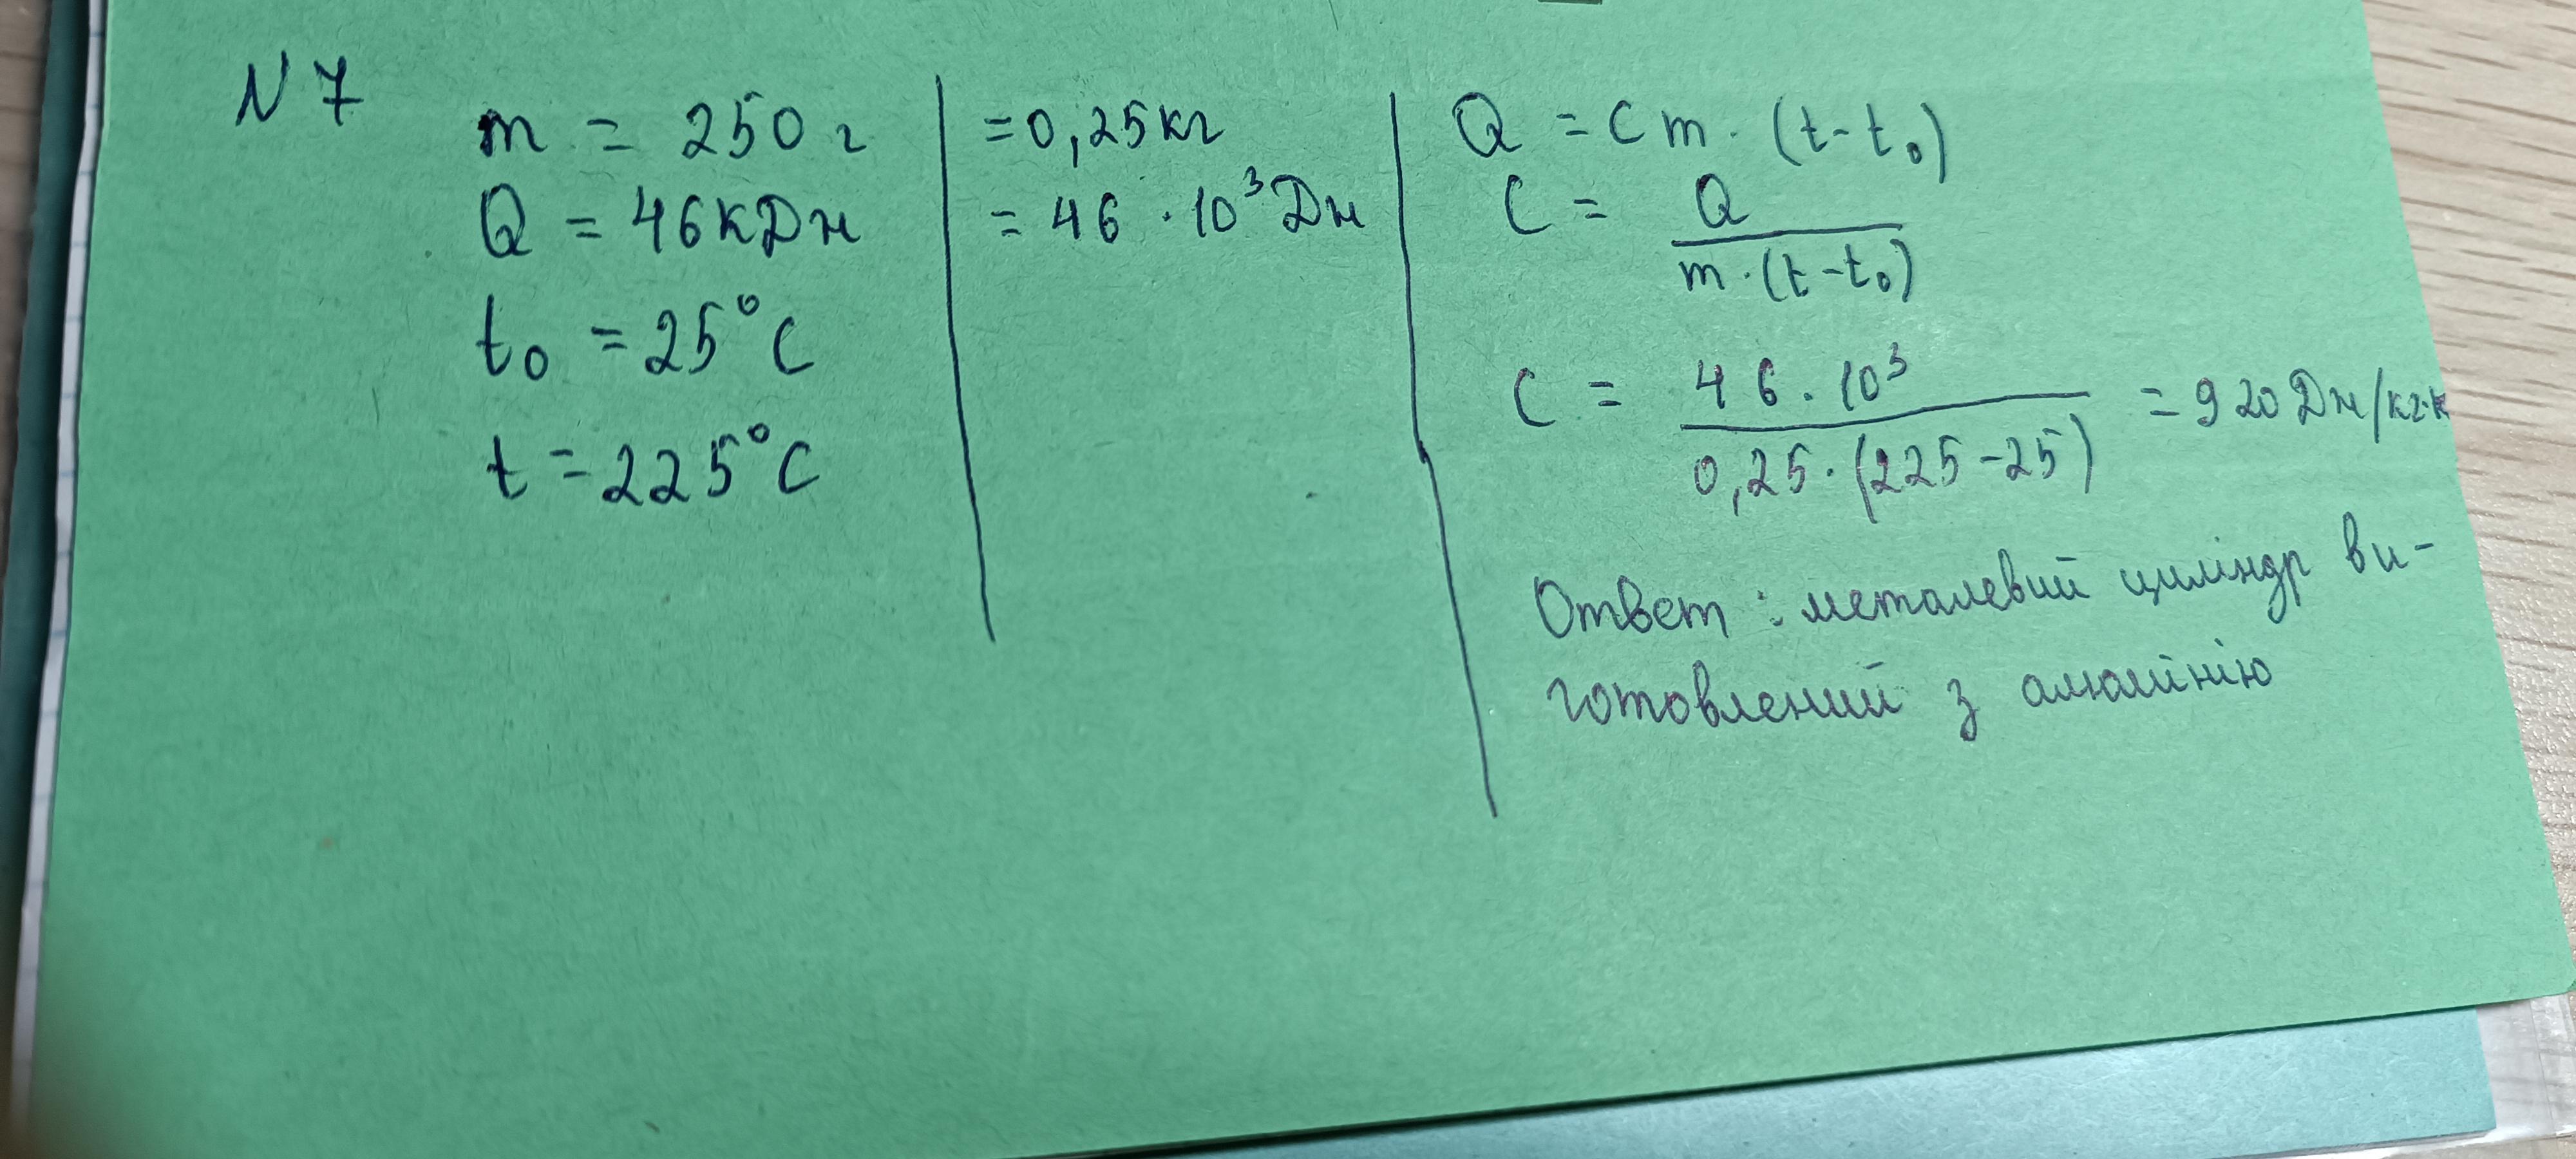 N 7
m = 250 г = 0,25 кг
Q = 46 кДж = 46 · 10³ Дж
t₀ = 25° C
t = 225° C
Q = C m · (t - t₀)
C = Q / m · (t - t₀)
C = 46 · 10³ / 0,25 · (225 - 25) = 920 Дж/кг·К
Ответ : металевий циліндр ви-
готовлений з алюмінію